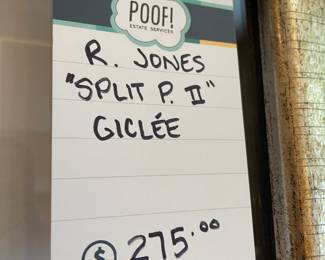 POOF!
ESTATE SERVICES
R. JONES
"SPLIT P. II"
GICLÉE
$ 275.00